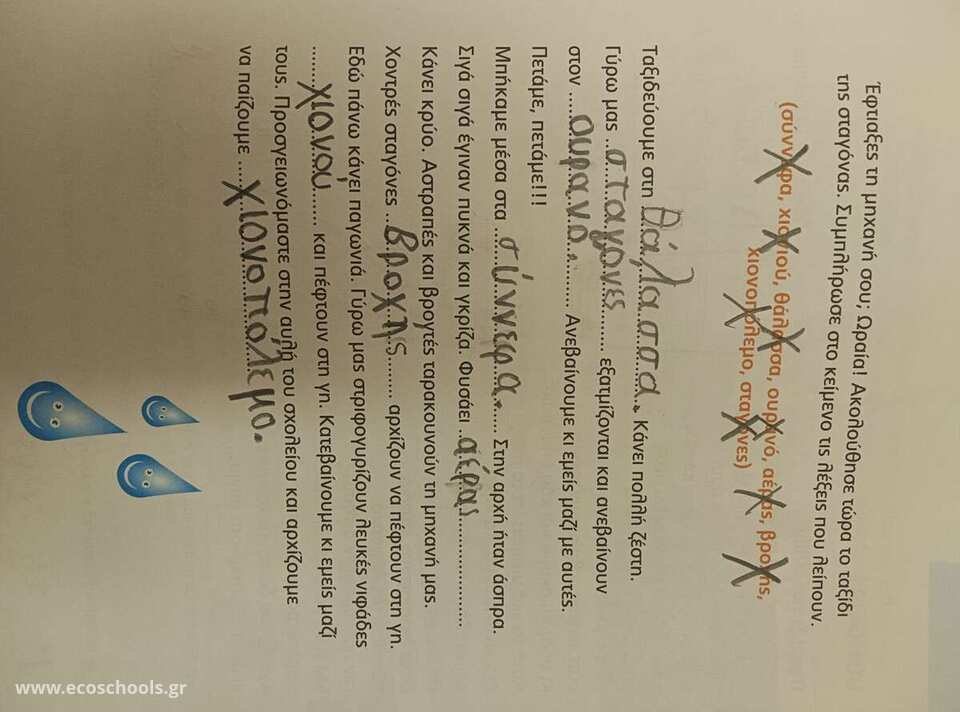 Έφτιαξες τη μηχανή σου; Ωραία! Ακολούθησε τώρα το ταξίδι
της σταγόνας. Συμπλήρωσε στο κείμενο τις λέξεις που λείπουν.
(σύννεφα, χιονιού, θάλασσα, ουρανό, αέρας, βροχής,
χιονοπόλεμο, σταγόνες)
Ταξιδεύουμε στη θάλασσα. Κάνει πολλή ζέστη.
Γύρω μας ..σταγονες.......... εξατμίζονται και ανεβαίνουν
στον ....ουρανο........... Ανεβαίνουμε κι εμείς μαζί με αυτές.
Πετάμε, πετάμε!!!
Μπήκαμε μέσα στα ..σύννεφα...... Στην αρχή ήταν άσπρα.
Σιγά σιγά έγιναν πυκνά και γκρίζα. Φυσάει ..αέρας....................
Κάνει κρύο. Αστραπές και βροντές ταρακουνούν τη μηχανή μας.
Χοντρές σταγόνες ..βροχης........ αρχίζουν να πέφτουν στη γη.
Εδώ πάνω κάνει παγωνιά. Γύρω μας στριφογυρίζουν λευκές νιφάδες
.......χιονου....... και πέφτουν στη γη. Κατεβαίνουμε κι εμείς μαζί
τους. Προσγειωνόμαστε στην αυλή του σχολείου και αρχίζουμε
να παίζουμε ....χιονοπόλεμο.
www.ecoschools.gr